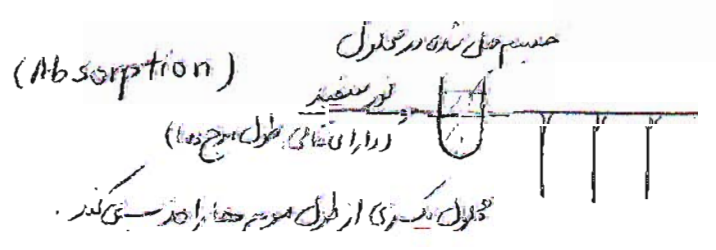 سدیم حل شده در محلول
(Absorption)
نور سفید
(دارای تمامی طول موج ها)
محلول یکسری از طول موج ها را جذب می کند .